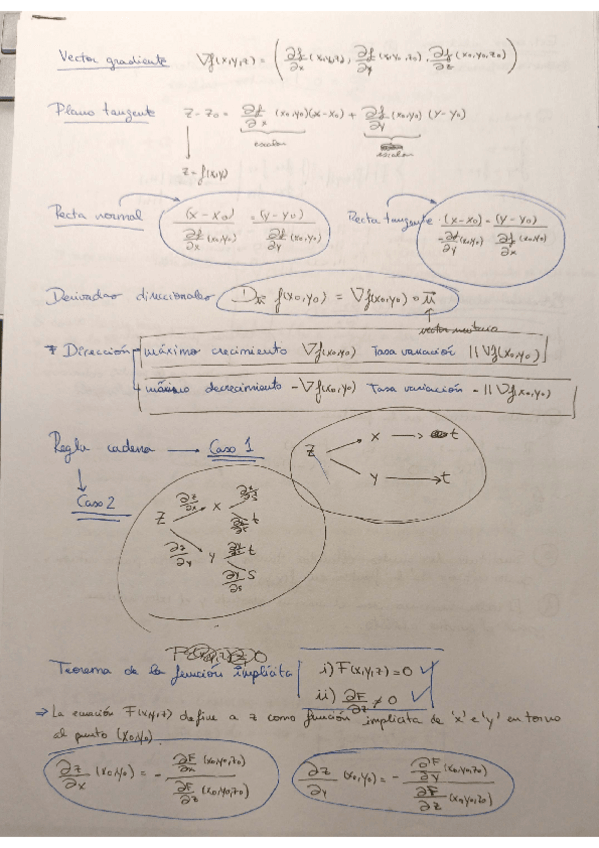 Vector gradiente ∇f(x,y,z) = (∂f/∂x (x₀,y₀,z₀), ∂f/∂y (x₀,y₀,z₀), ∂f/∂z (x₀,y₀,z₀))
Plano tangente z - z₀ = ∂f/∂x (x₀,y₀)(x-x₀) + ∂f/∂y (x₀,y₀) (y-y₀)
escalar escalar
z=f(x,y)
Recta normal (x-x₀)/(∂f/∂x (x₀,y₀)) = (y-y₀)/(∂f/∂y (x₀,y₀)) Recta tangente (x-x₀)/(-∂f/∂y (x₀,y₀)) = (y-y₀)/(∂f/∂x (x₀,y₀))
Derivadas direccionales D_u⃗ f(x₀,y₀) = ∇f(x₀,y₀) ∘ u⃗
vector unitario
* Dirección máximo crecimiento ∇f(x₀,y₀) Tasa variación ||∇f(x₀,y₀)||
máximo decrecimiento -∇f(x₀,y₀) Tasa variación -||∇f(x₀,y₀)||
Regla cadena → Caso 1
z x → t
y → t
Caso 2
z ∂z/∂x x ∂x/∂s
∂x/∂t t
∂z/∂y y ∂y/∂t t
∂y/∂s s
Teorema de la función implícita i) F(x,y,z)=0 ✓
ii) ∂F/∂z ≠ 0 ✓
⇒ La ecuación F(x,y,z) define a z como función implícita de 'x' e 'y' en torno
al punto (x₀,y₀)
∂z/∂x (x₀,y₀) = - (∂F/∂x (x₀,y₀,z₀))/(∂F/∂z (x₀,y₀,z₀)) ∂z/∂y (x₀,y₀) = - (∂F/∂y (x₀,y₀,z₀))/(∂F/∂z (x₀,y₀,z₀))